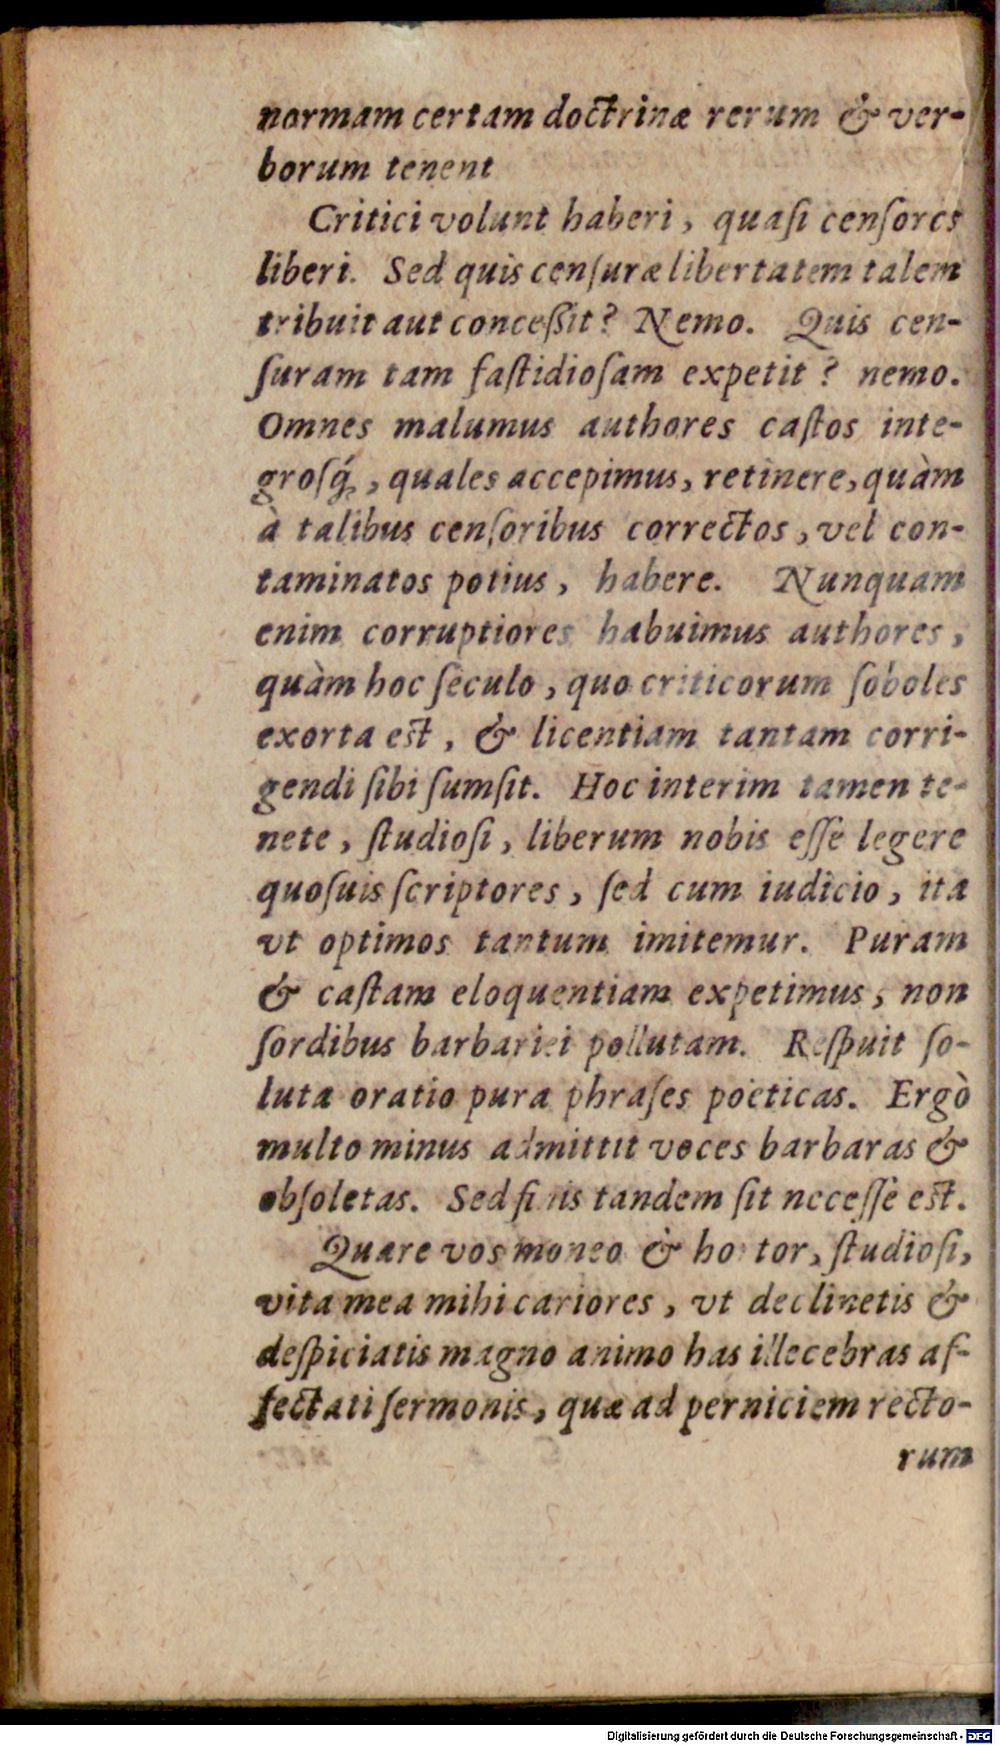 normam certam doctrinæ rerum & ver-
borum tenent
Critici volunt haberi, quaſi cenſores
liberi. Sed quis cenſuræ libertatem talem
tribuit aut conceßit? Nemo. Quis cen-
ſuram tam faſtidioſam expetit? nemo.
Omnes malumus authores caſtos inte-
groſq́;, quales accepimus, retinere, quàm
à talibus cenſoribus correctos, vel con-
taminatos potius, habere. Nunquam
enim corruptiores habuimus authores,
quàm hoc ſeculo, quo criticorum ſoboles
exorta est, & licentiam tantam corri-
gendi ſibi ſumſit. Hoc interim tamen te-
nete, ſtudioſi, liberum nobis eſſe legere
quoſuis ſcriptores, ſed cum iudicio, ita
vt optimos tantum imitemur. Puram
& caſtam eloquentiam expetimus, non
ſordibus barbariei pollutam. Reſpuit ſo-
luta oratio pura phraſes poëticas. Ergò
multo minus admittit voces barbaras &
obſoletas. Sed finis tandem ſit neceſſe est.
Quare vos moneo & hortor, ſtudioſi,
vita mea mihi cariores, vt declinetis &
deſpiciatis magno animo has illecebras af-
fectati ſermonis, quæ ad perniciem recto-
rum
Digitalisierung gefördert durch die Deutsche Forschungsgemeinschaft - DFG